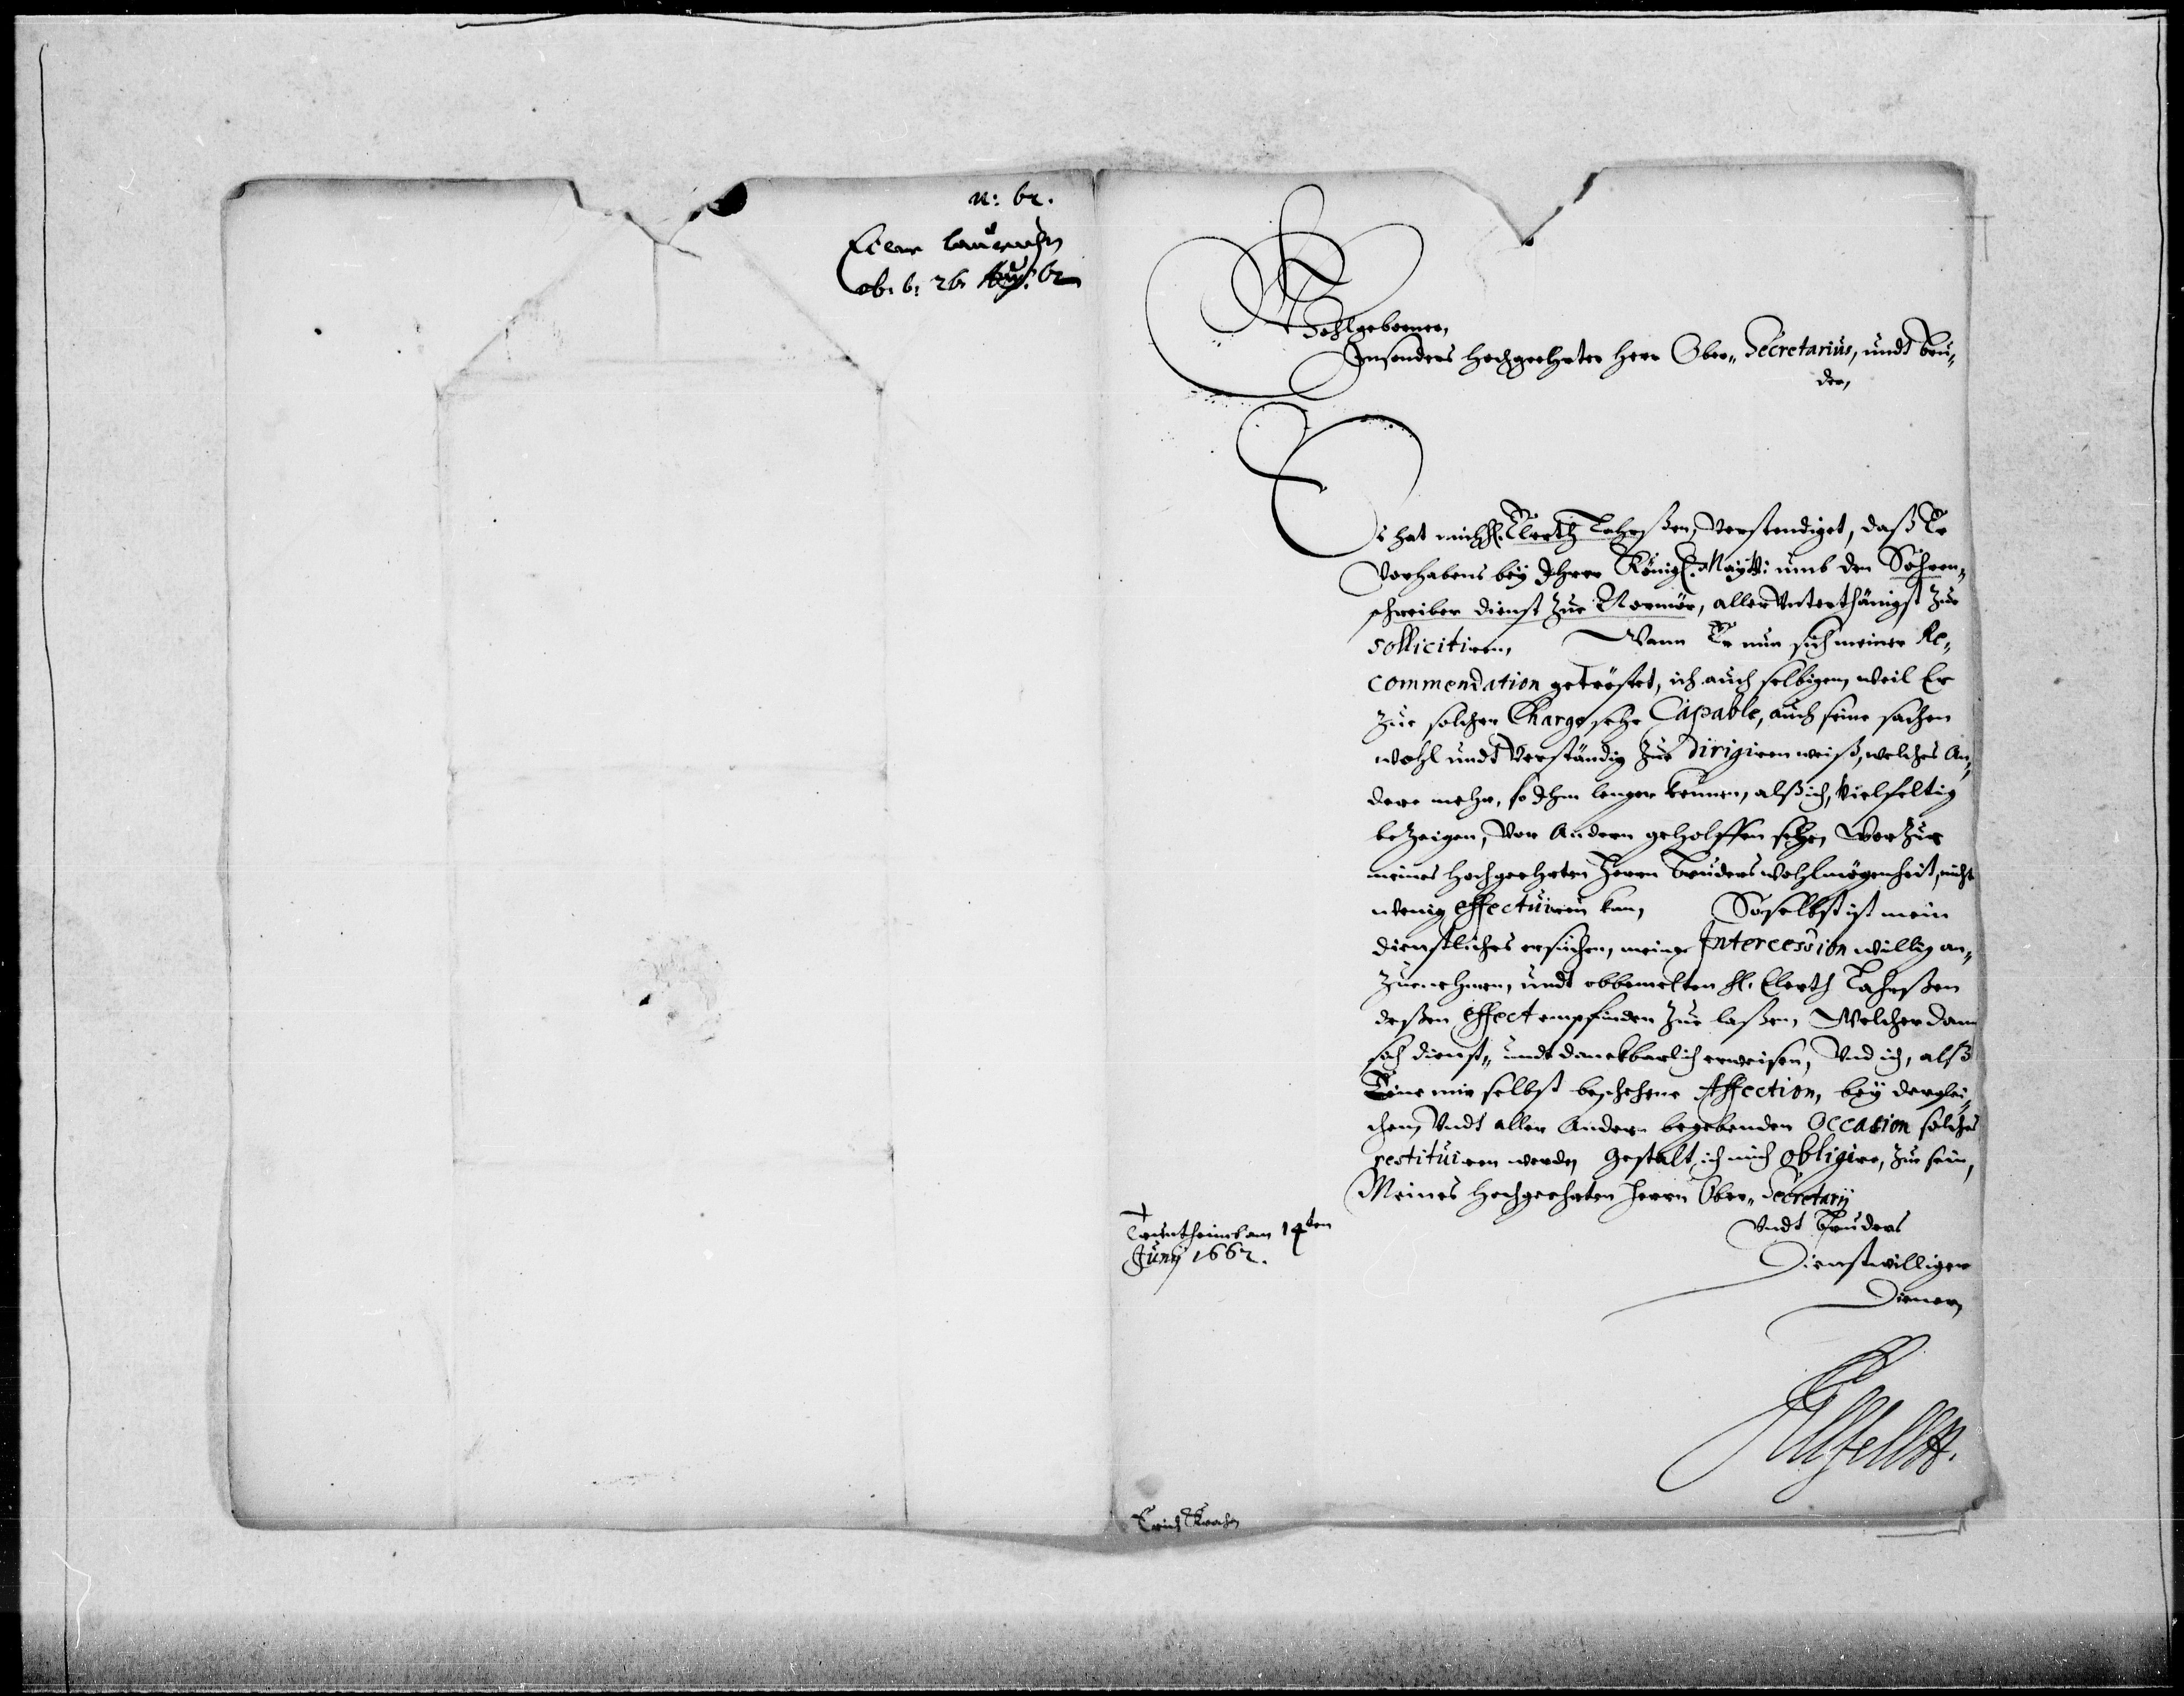 n: 62.
Wohlgeborner,
Insonders hochgeehrter Herr Ober-Secretarius, undt Bru-
der,
Es hat mich H. Elertz Lahrßen, verstendiget, daß Er
Vorhabens bey Ihrer Königl. Maytt: umb den Söhren-
schreiber dienst zue Normör, aller Unterthänigst zue
sollicitiren, Wann Er nun sich meiner Re-
commendation getröstet, ich auch selbigem, weil Er
zue solcher Charge sehr Capable, auch seine sachen
wohl undt Verständig zue dirigiren weiß, welches An-
dere mehr, so Ihm lenger kennen, alß ich, Vielfeltig
bezeigen, Vor Andern geholffen sehe, Worzue
meines hochgeehrten Herrn Bruders wohlmögenheit, nicht
wenig effectuiren kan, So selbst ist mein
dienstliches ersuchen, meine Intercession willig an-
zunehmen, undt obbemelten H. Elertz Lahrßen
deßen effect empfinden zue laßen, Welcher dann
sich dienst- undt danckbarlich erweisen, Und ich, alß
Eine mir selbst beschehene Affection, bey derglei-
chen, Undt aller Andern begebenden Occasion solches
restituiren werde, Gestalt ich mich obligire, zue sein,
Meines hochgeehrten Herrn Ober-Secretarij
Undt Bruders
Dienstwilliger
Diener,
Truntheimb am 14ten
Junij 1662.